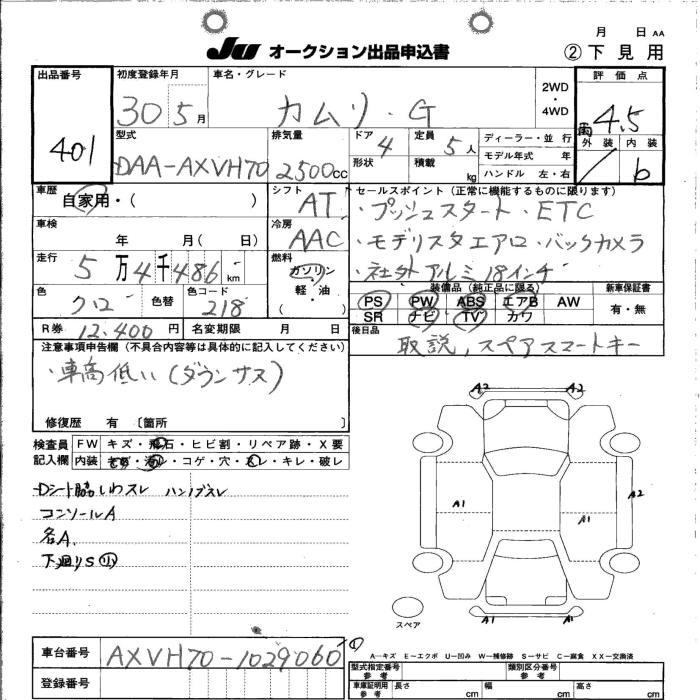 月 日 AA
JU オークション出品申込書 ②下見用
出品番号 初度登録年月 車名・グレード 2WD ・ 4WD 評価点
401 30 5月 カムリ・G 4.5
型式 排気量 ドア 定員 ディーラー・並行 外装 内装
DAA-AXVH70 2500cc 4 5人 モデル年式 年 b
形状 積載 kg ハンドル 左・右
車歴 シフト セールスポイント(正常に機能するものに限ります)
自家用・( ) AT ・プッシュスタート・ETC
車検 冷房
年 月( 日) AAC ・モデリスタエアロ・バックカメラ
走行 5万4千486km 燃料 ガソリン 軽・油 ( ) ・社外アルミ18インチ
色 クロ 色替 色コード 218 装備品(純正品に限る) 新車保証書
PS PW ABS エアB AW 有・無
SR ナビ TV カワ
R券 12.400円 名変期限 月 日 後日品
取説,スペアスマートキー
注意事項申告欄(不具合内容等は具体的に記入してください)
・車高低い(ダウンサス)
修復歴 有 〔箇所 〕
検査員 FW キズ・飛石・ヒビ割・リペア跡・X要
記入欄 内装 キズ・汚レ・コゲ・穴・スレ・キレ・破レ
Dシート脇しわスレ ハンドルスレ
コンソールA
各A.
下廻りS小
A2 A2
A1 A1 A2
A1 A1
スペア
車台番号 AXVH70-1029060
A−キズ E−エクボ U−凹み W−補修跡 S−サビ C−腐食 XX−交換済
登録番号
型式指定番号 参考 類別区分番号 参考
車庫証明用 参考 長さ cm 幅 cm 高さ cm